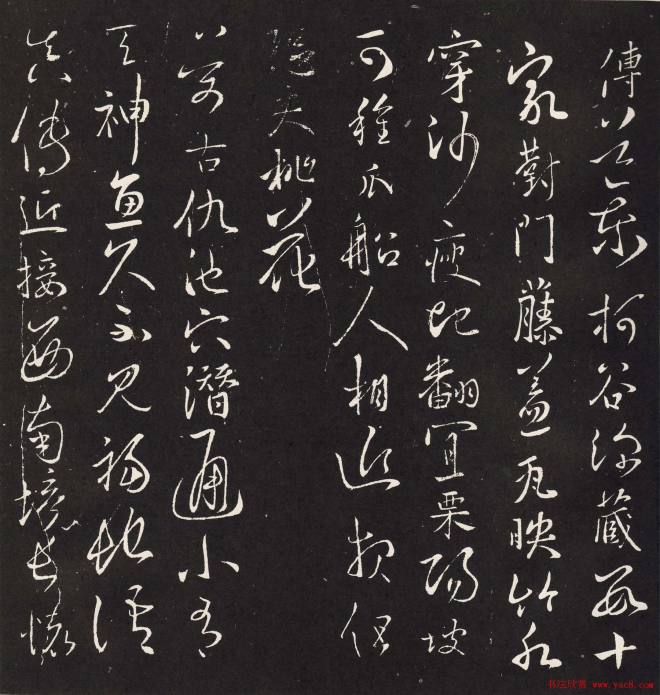 傳道東柯谷深藏數十
家對門藤蓋瓦映竹水
穿沙瘦地翻宜粟陽坡
可種瓜船人相近報但
恐失桃花
萬古仇池穴潛通小有
天神魚久不見福地語
真傳近接西南境長懷
书法欣赏 www.yac8.com